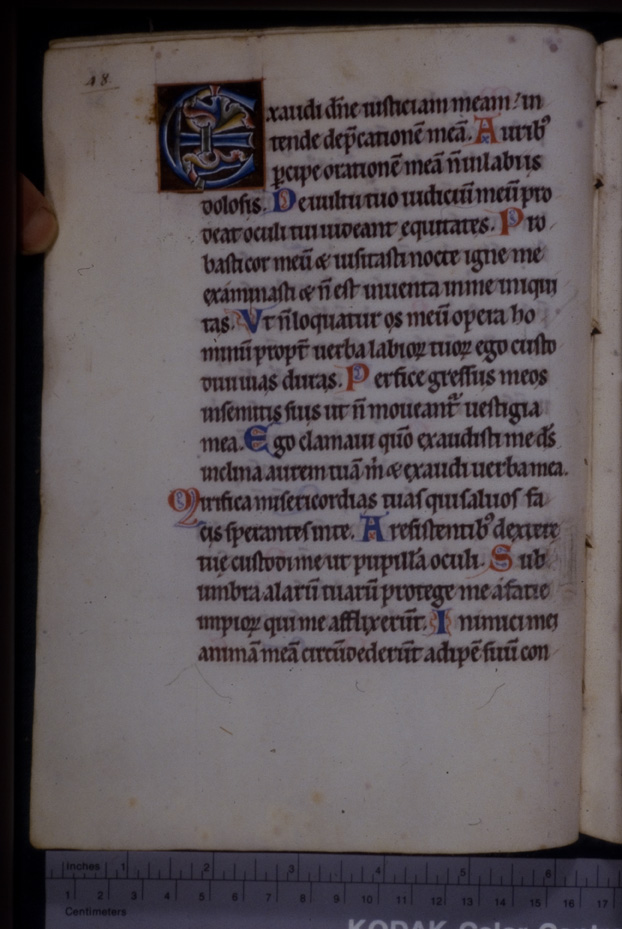 48.
Exaudi dn̄e iusticiam meam: in
tende dep̄cationē meā. Aurib⁹
ꝑcipe orationē meā n̄ in labiis
dolosis. De uultu tuo iudiciū meū pro
deat oculi tui uideant equitates. Pro
basti cor meū & uisitasti nocte igne me
examinasti & n̄ est inuenta in me iniqui
tas. Vt n̄ loquatur os meū opera ho
minū propt̄ uerba labioꝝ tuoꝝ ego custo
diui uias duras. Perfice gressus meos
in semitis tuis ut n̄ moueant᷑ uestigia
mea. Ego clamaui quō exaudisti me ds̄
inclina aurem tuā m̄ & exaudi uerba mea.
Mirifica misericordias tuas qui saluos fa
cis sperantes in te. A resistentib⁹ dextere
tue custodi me ut pupillā oculi. Sub
umbra alarū tuarū protege me a facie
impioꝝ qui me afflixerūt. Inimici mei
animā meā circūdederūt adipē suū con
Inches 1 2 3 4 5 6
1 2 3 4 5 6 7 8 9 10 11 12 13 14 15 16 17
Centimeters
KODAK Color Cont